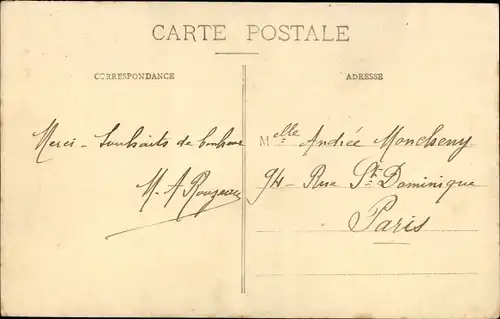 CARTE POSTALE
CORRESPONDANCE
Merci - Souhaits de bonheur
M. A
ADRESSE
Melle Andrée Moncheny
94 - Rue St Dominique
Paris